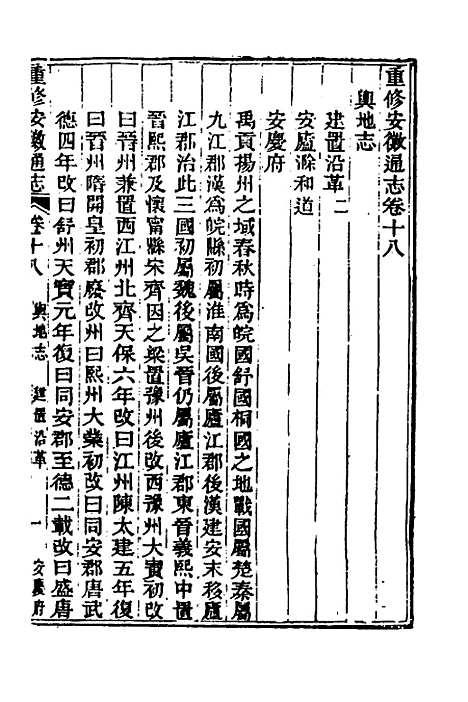 重修安徽通志卷十八
輿地志
建置沿革二
安廬滁和道
安慶府
禹貢揚州之域春秋時爲皖國舒國桐國之地戰國屬楚秦屬
九江郡漢爲皖縣初屬淮南國後屬廬江郡後漢建安末移廬
江郡治此三國初屬魏後屬吳晉仍屬廬江郡東晉義熙中置
晉熙郡及懷甯縣宋齊因之梁置豫州後改西豫州大寶初改
曰晉州兼置西江州北齊天保六年改曰江州陳太建五年復
曰晉州隋開皇初郡廢改州曰熙州大業初改曰同安郡唐武
德四年改曰舒州天寶元年復曰同安郡至德二載改曰盛唐
重修安徽通志 卷十八 輿地志 建置沿革 一 安慶府